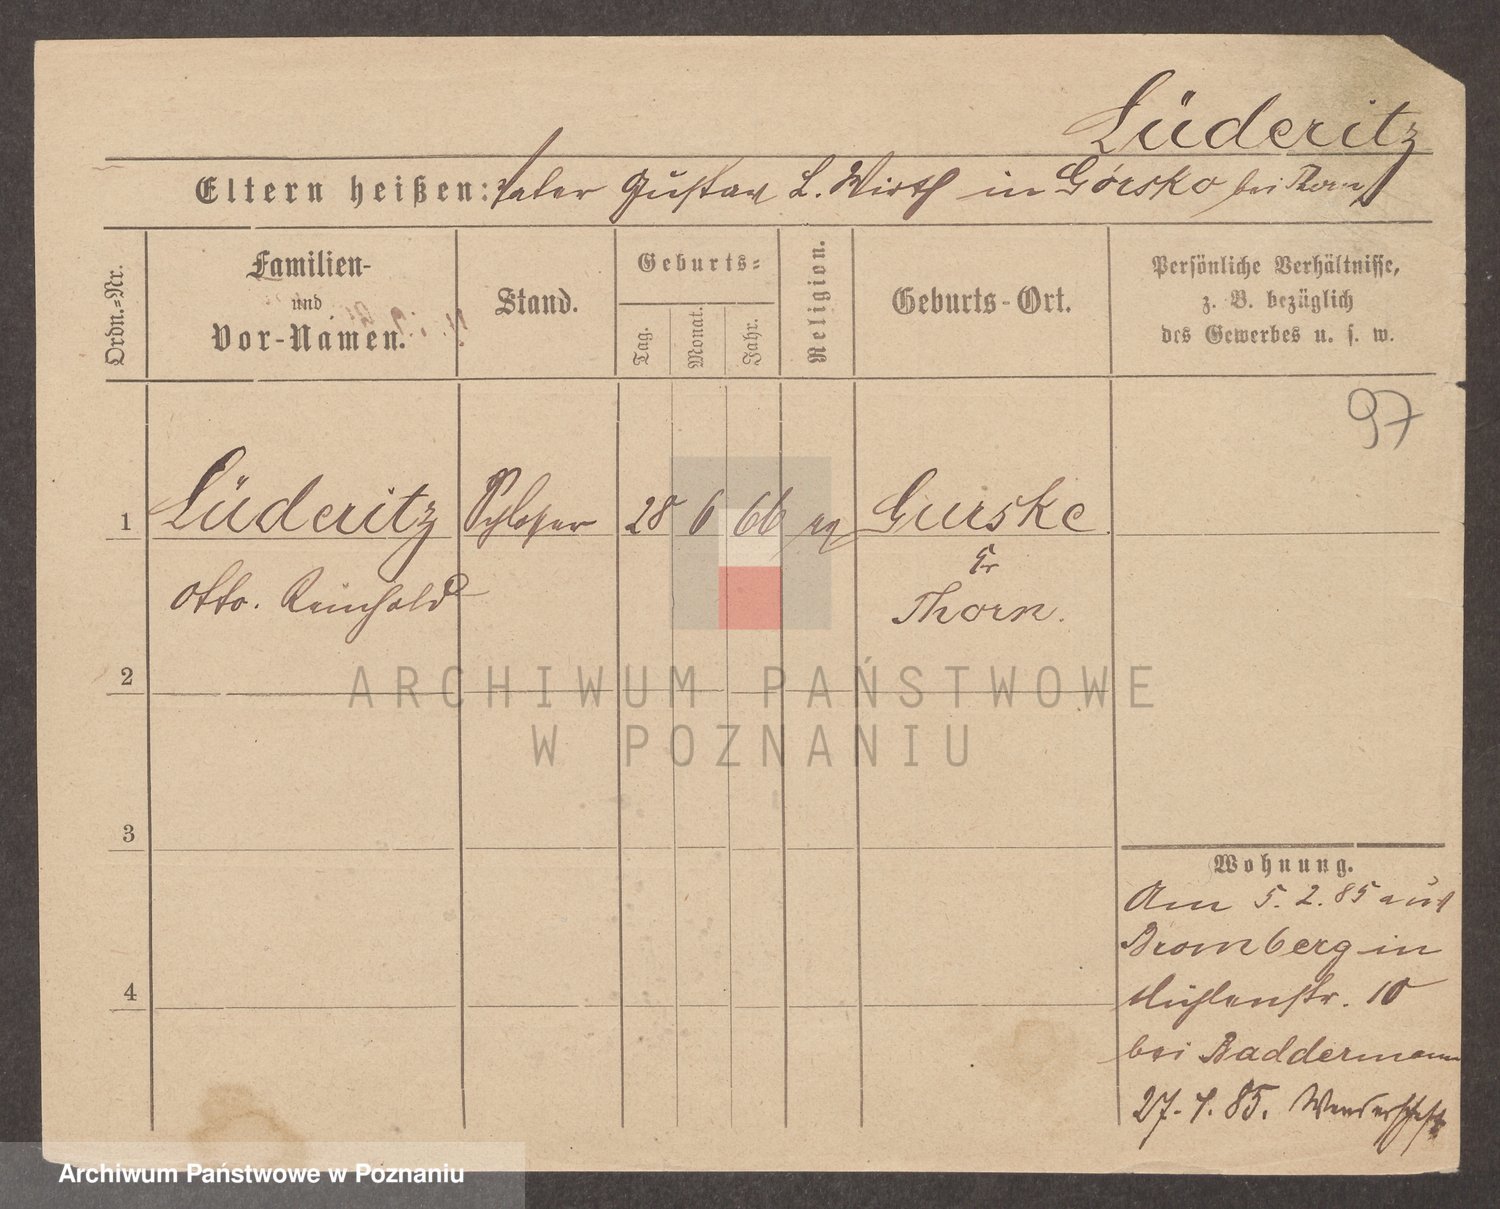 Lüderitz
Eltern heißen: Vater Gustav L. Wirth in Gorsko bei Thorn
Ordn.-Nr.
Familien-
und
Vor-Namen.
Stand.
Geburts-
Tag.
Monat.
Jahr.
Religion.
Geburts-Ort.
Persönliche Verhältnisse,
z. B. bezüglich
des Gewerbes u. s. w.
97
1 Lüderitz Schlosser 28 6 66 Gurske
Otto. Reinhold
Kr
Thorn.
2
3
4
Wohnung.
Am 5. 2. 85 aus
Bromberg in
Mühlenstr. 10
bei Baddermann
27. 4. 85. Wanderschaft
ARCHIWUM PAŃSTWOWE
W POZNANIU
Archiwum Państwowe w Poznaniu